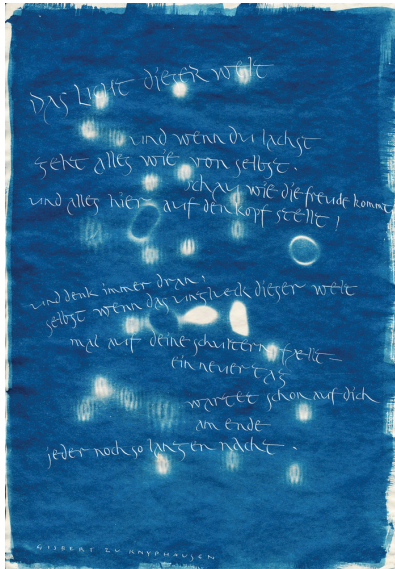 Das Licht dieser Welt
und wenn du lachst
geht alles wie von selbst.
schau, wie die freude kommt
und alles hier auf den kopf stellt!
und denk immer dran,
selbst wenn das unglueck dieser welt
mal auf deine schultern faellt
ein neuer tag
wartet schon auf dich
am ende
jeder noch so langen nacht.
GISBERT ZU KNYPHAUSEN